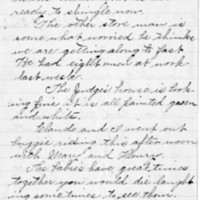 ready to shingle now.
The other store man is
some what worried he thinks
we are getting along to fast
We had eight men at work
last week.
The Judges house is look-
ing fine it is all painted green
and white.
Claude and I went out
buggie riding this afternoon
with Mary and
The babies have great times
together you would die laugh-
ing some times to see them.